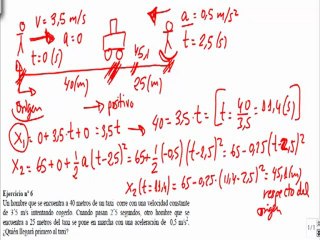 V = 3,5 m/s
a = 0
t = 0 (s)
a = 0,5 m/s²
t = 2,5 (s)
45,1
40 (m)
25 (m)
origen
→ positivo
X₁ = 0 + 3,5·t + 0 = 3,5t → 40 = 3,5·t = [t = 40/3,5 = 11,4 (s)]
X₂ = 65 + 0 + 1/2 a (t-2,5)² = 65 + 1/2 (-0,5)(t-2,5)² = 65 - 0,25·(t-2,5)²
X₂ (t = 11,4) = 65 - 0,25·(11,4-2,5)² = 45,1 (m)
respecto del
origen
Ejercicio nº 6
Un hombre que se encuentra a 40 metros de un taxi corre con una velocidad constante
de 3'5 m/s intentando cogerlo. Cuando pasan 2'5 segundos, otro hombre que se
encuentra a 25 metros del taxi se pone en marcha con una aceleración de 0,5 m/s².
¿Quién llegará primero al taxi?